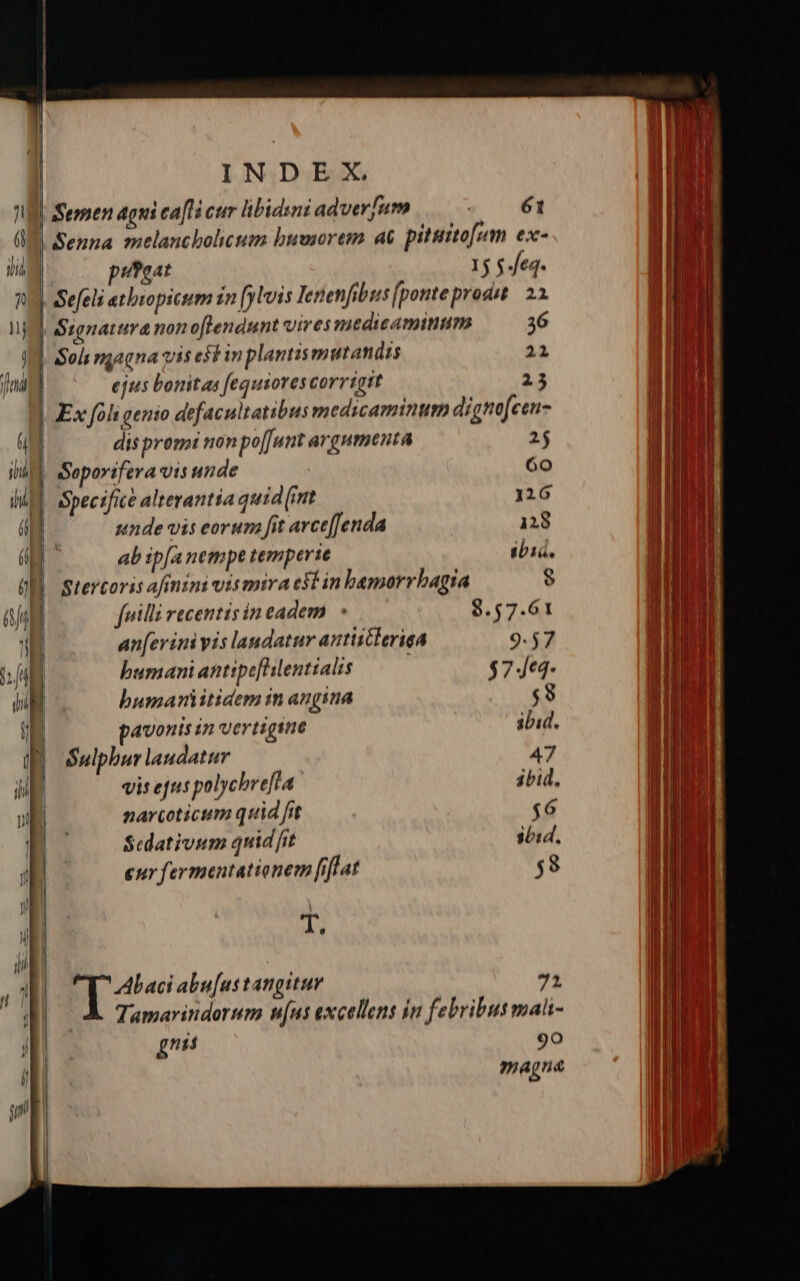 INDEX.
Semen agni casti cur libidini adversum 61
Senna melancholicum humorem ac pituitosum ex-
purgat 15 s.seq.
Seseli æthiopicum in sylvis Ienensibus sponte prodit 22
Signaturæ non ostendunt vires medicaminum 36
Soli magna vis est in plantis mutandis 22
ejus bonitas sequiores corrigit 23
Ex soli genio de facultatibus medicaminum dignoscen-
dis promi non possunt argumenta 25
Soporifera vis unde 60
Specificè alterantia quid sint 126
unde vis eorum sit arcessenda 128
ab ipsa nempe temperie ibid.
Stercoris asinini vis mira est in hæmorrhagia 8
suilli recentis in eadem 8.57.61
anserini vis laudatur antiicterica 9.57
humani antipestilentialis 57.seq.
humani itidem in angina 58
pavonis in vertigine ibid.
Sulphur laudatur 47
vis ejus polychresta ibid.
narcoticum quid sit 56
Sedativum quid sit ibid.
cur fermentationem sistat 58
T.
Tabaci abusus tangitur 72
Tamarindorum usus excellens in febribus mali-
gnis 90
magnæ